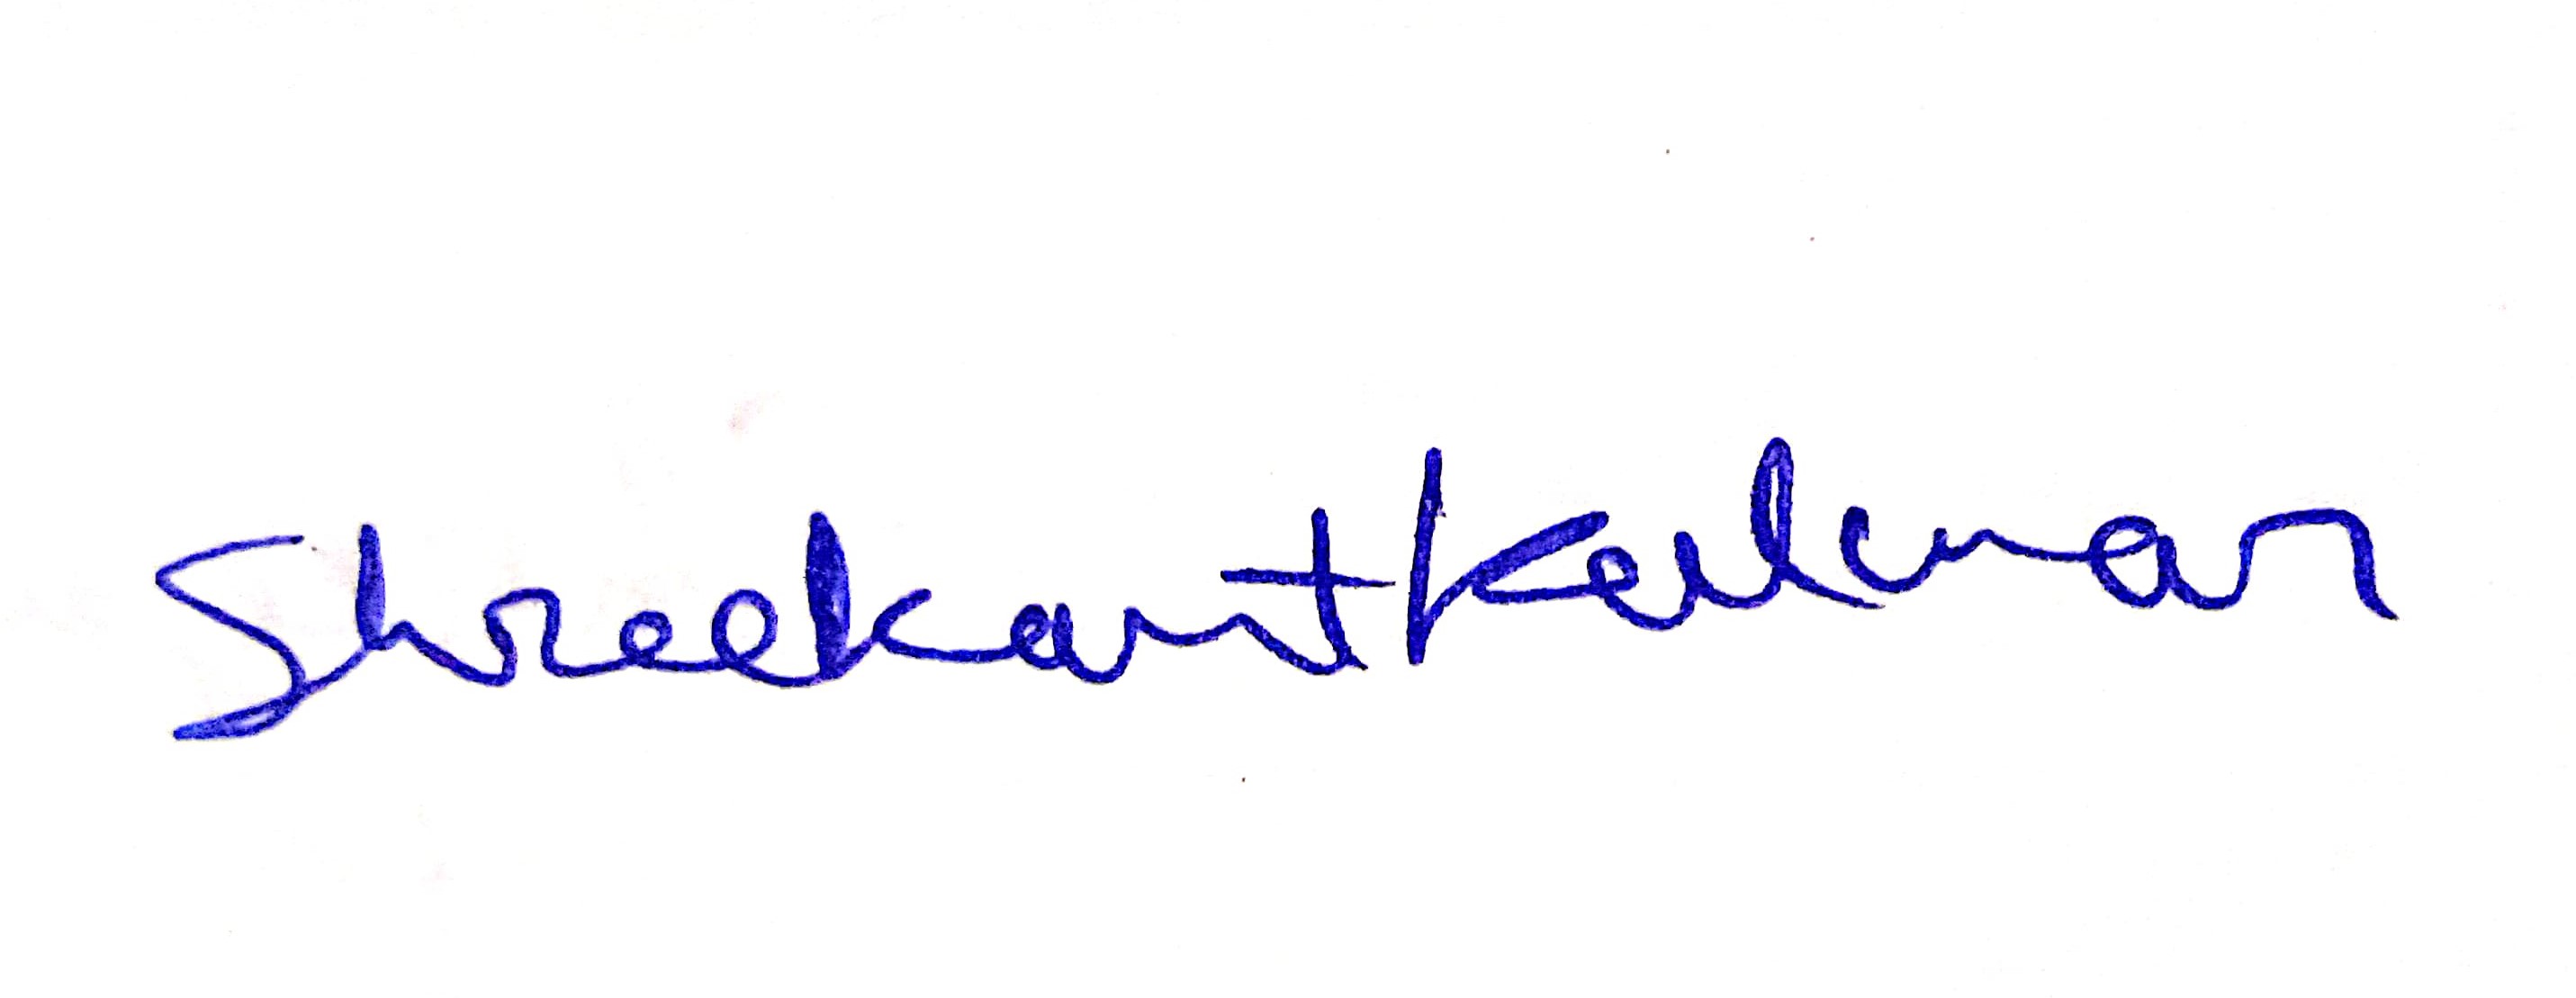 Shreekant Kalmar